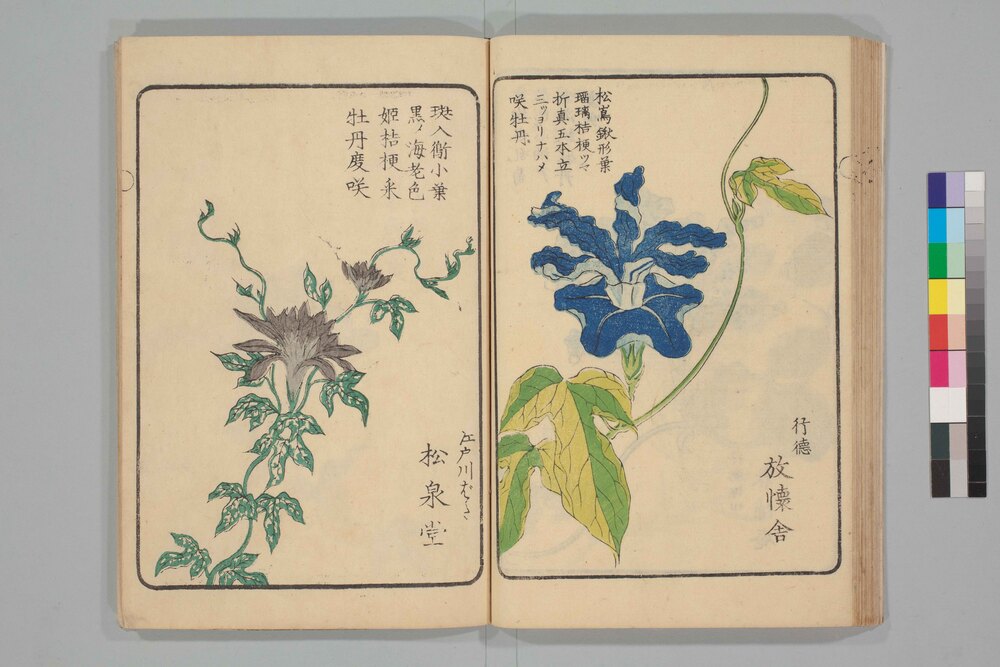 松嶌鍬形葉
瑠璃桔梗ツマ
折真五本立
三ツヨリナハメ
咲牡丹
行德
放懷舎
斑入衞小葉
黒メ海老色
姫桔梗采
牡丹度咲
江戸川
松泉堂